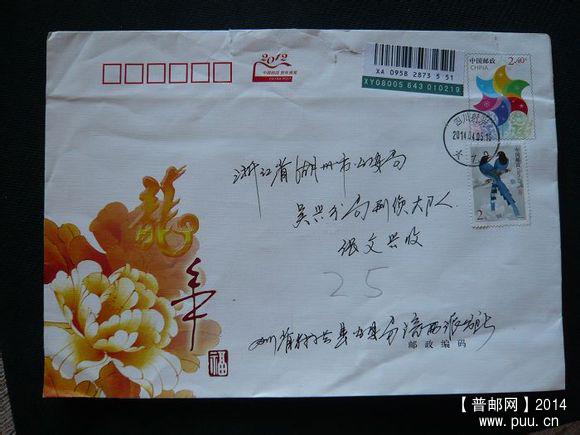 2012
中国邮政 贺年有奖
XA 0958 2873 5 51
XY08005 643 010219
中国邮政
CHINA
2.40元
四川
2014.04.05.16
浙江省湖州市公安局
吴兴分局刑侦大队
张文兴收
25
龙
年
福
四川省珙县公安局
派出所
邮政编码
【普邮网】2014
www.puu.cn